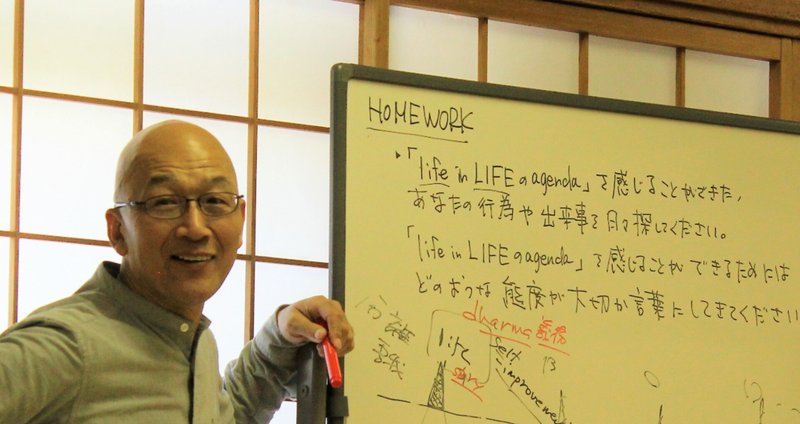 HOMEWORK
「life in LIFE の agenda」を感じることができた、
あなたの行為や出来事を日々探してください。
「life in LIFE の agenda」を感じることができるためには
どのような態度が大切か言葉にしてきてください
dharma 義務
life self
improvement